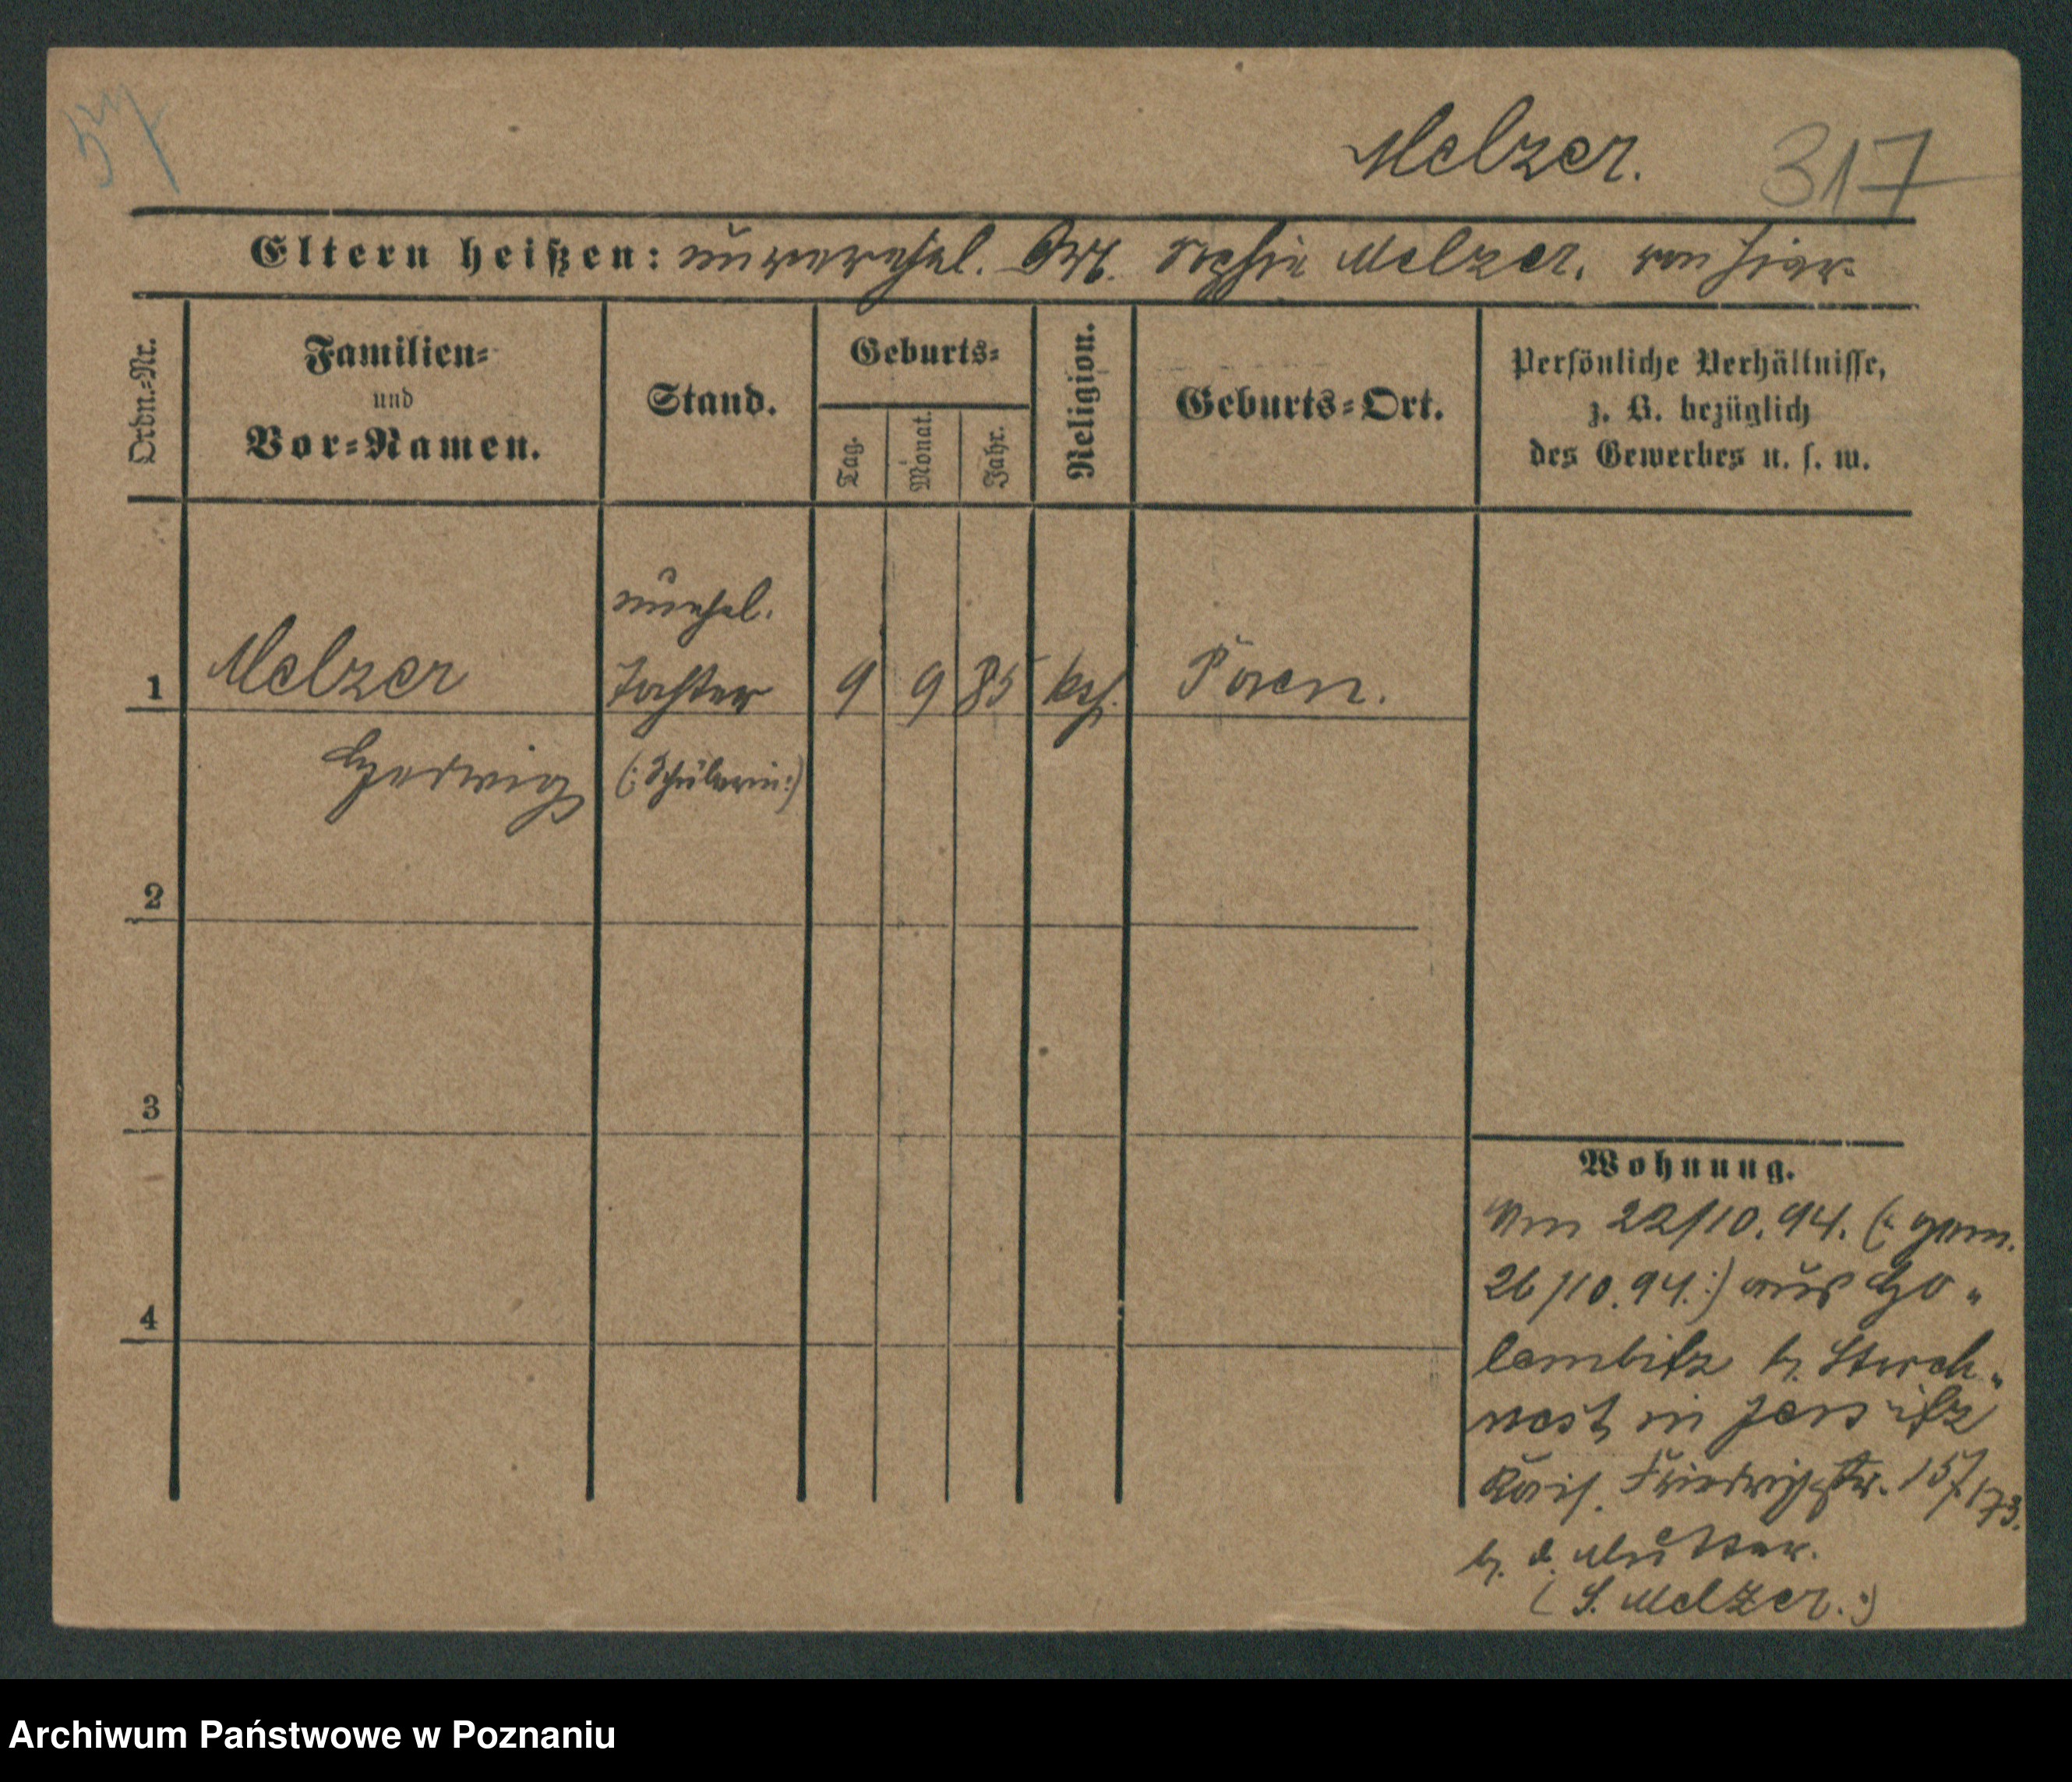 Melzer. 317
Eltern heißen: unverehel. Sophie Melzer. von hier.
Ordn.=Nr.
Familien=
und
Vor=Namen.
Stand.
Geburts=
Tag.
Monat.
Jahr.
Religion.
Geburts=Ort.
Persönliche Verhältnisse,
z. B. bezüglich
des Gewerbes u. s. w.
unehel.
1 Melzer Tochter 9 9 85 kath. Posen.
Hedwig (: Schülerin :)
2
3
4
Wohnung.
Am 22/10. 94. (: gem.
26/10. 94. :) aus Go"
lembitz b. Storch"
nest in Jersitz
Kais. Friedrichstr. 157/173.
b. d. Mutter.
(S. Melzer. :)
Archiwum Państwowe w Poznaniu